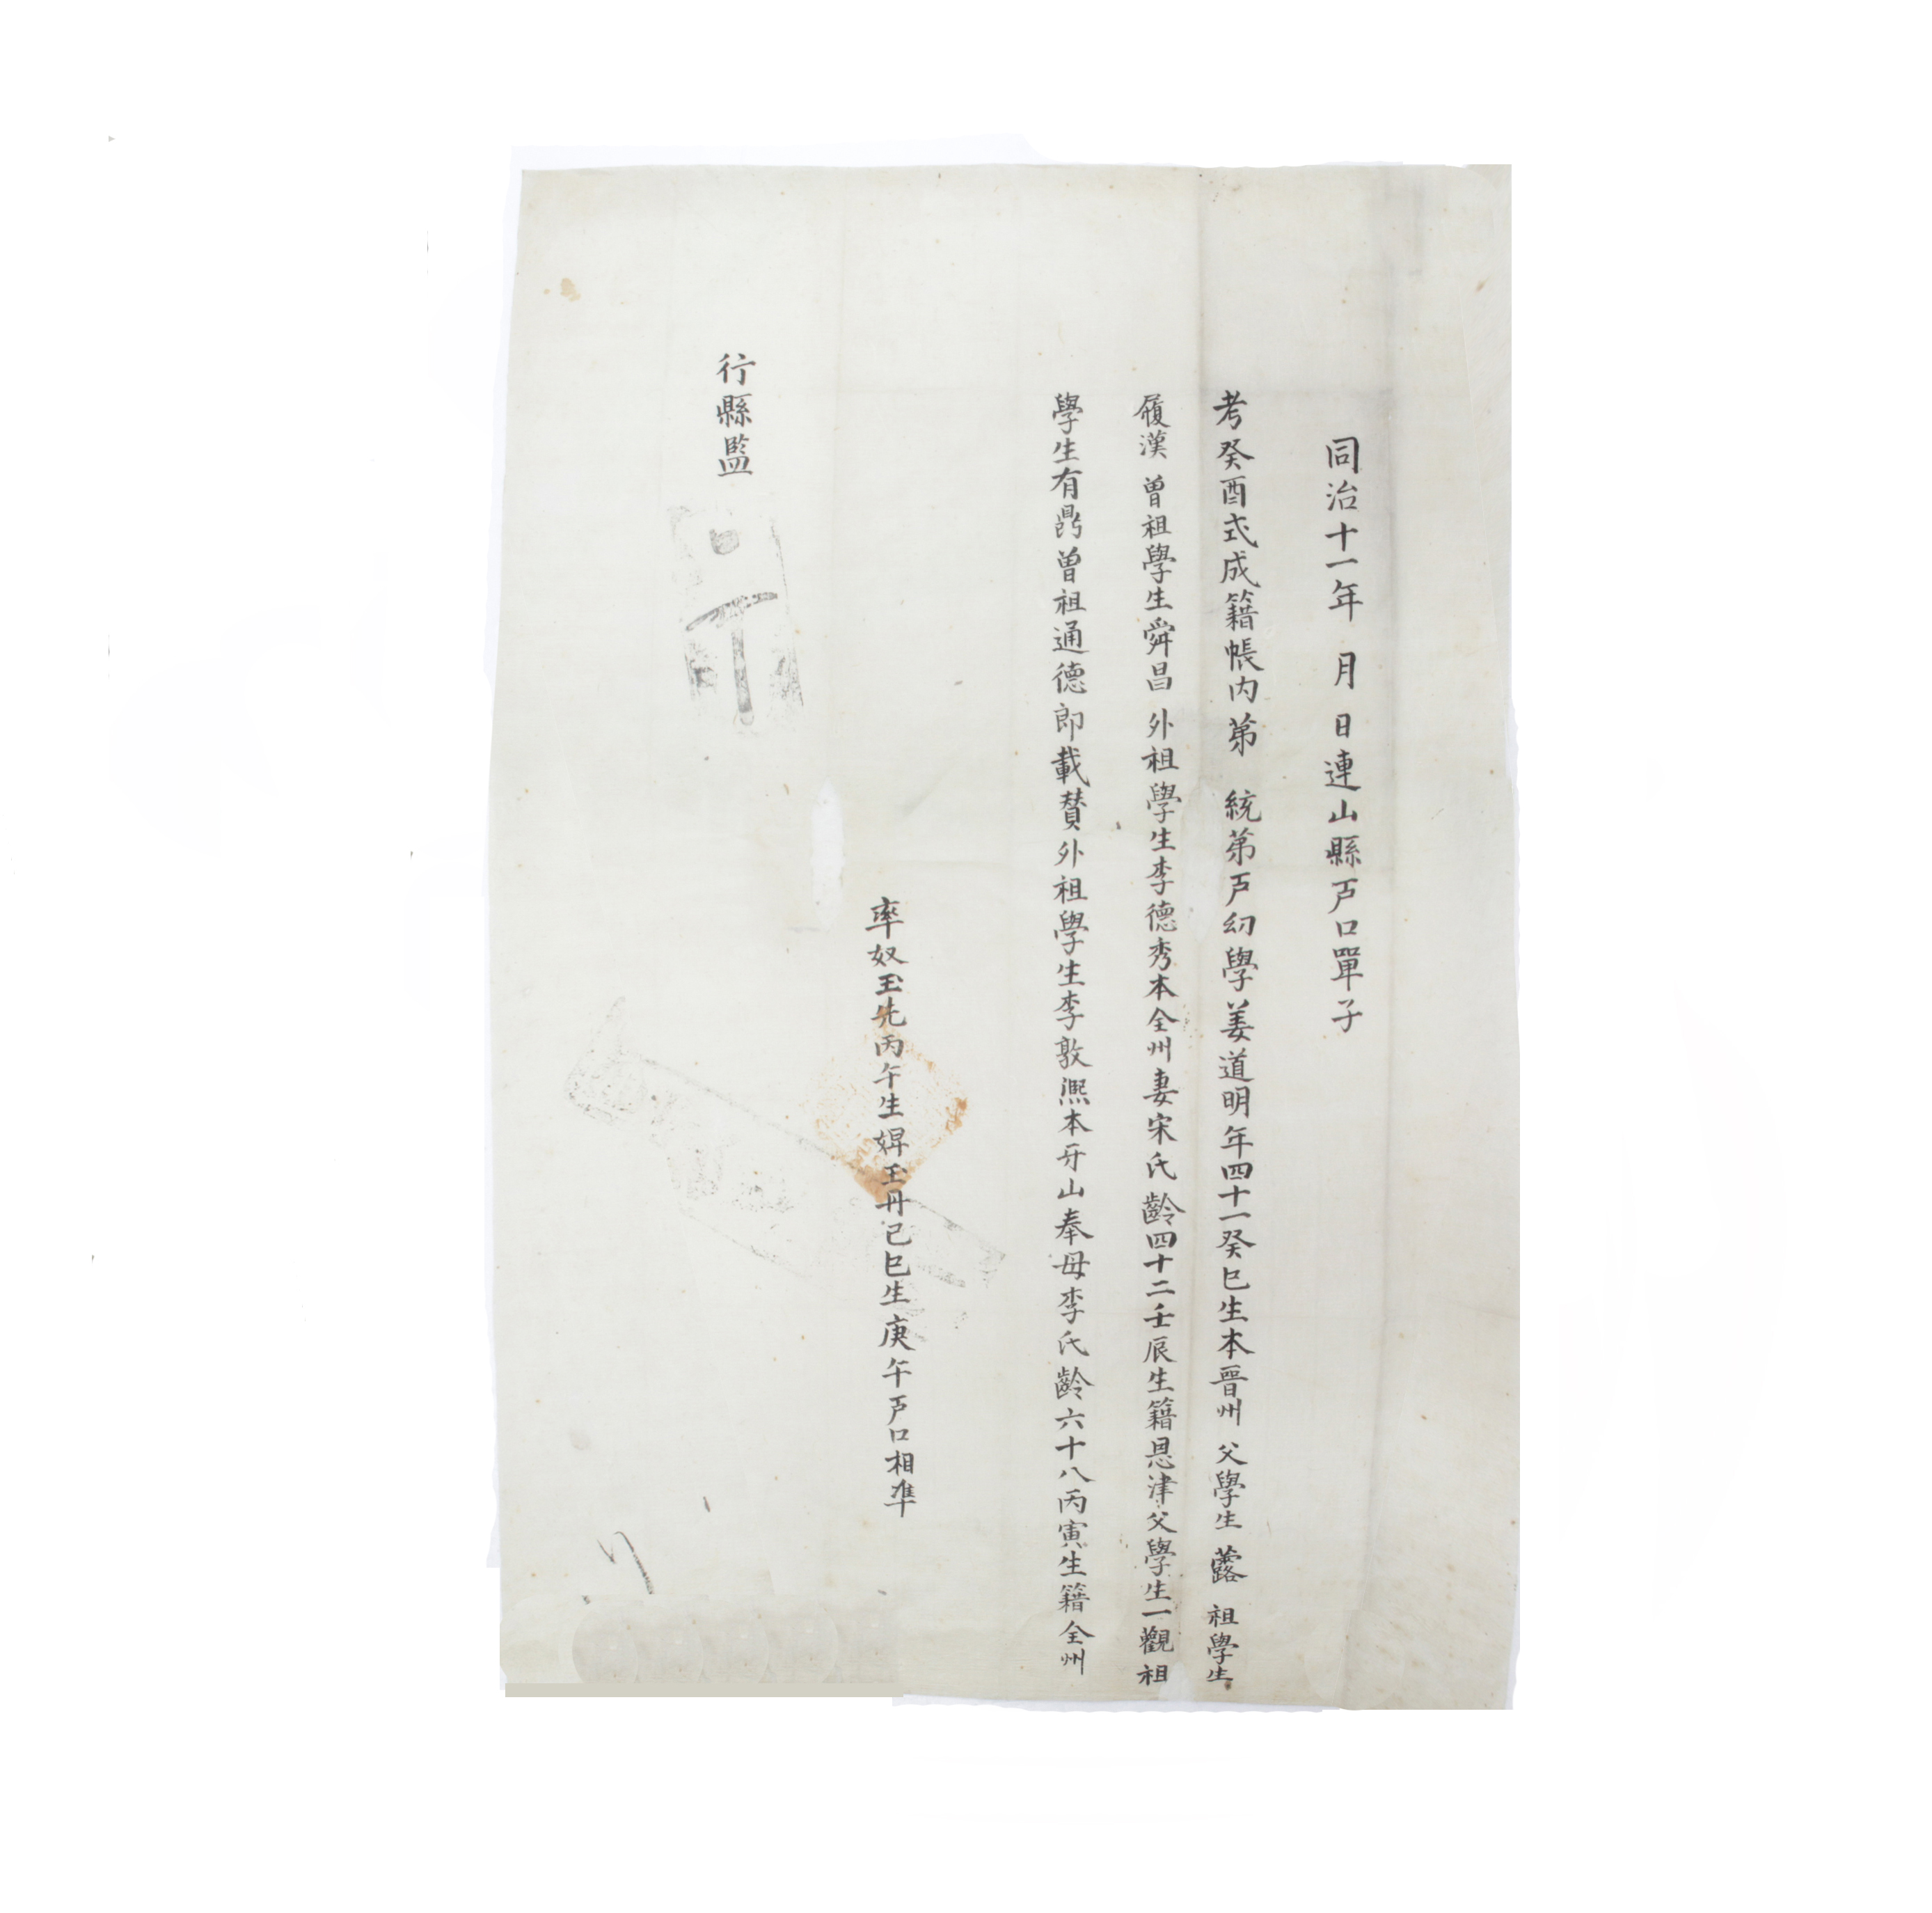 同治十一年 月 日連山縣戶口單子
考癸酉式成籍帳內第 統第戶幼學姜道明年四十一癸巳生本晉州 父學生 蕗 祖學生
履漢 曾祖學生舜昌 外祖學生李德秀本全州妻宋氏齡四十二壬辰生籍恩津父學生一觀祖
學生有鼎曾祖通德郎載贊外祖學生李敦熈本牙山奉母李氏齡六十八丙寅生籍全州
率奴玉先丙午生婢玉丹己巳生庚午戶口相準
行縣監